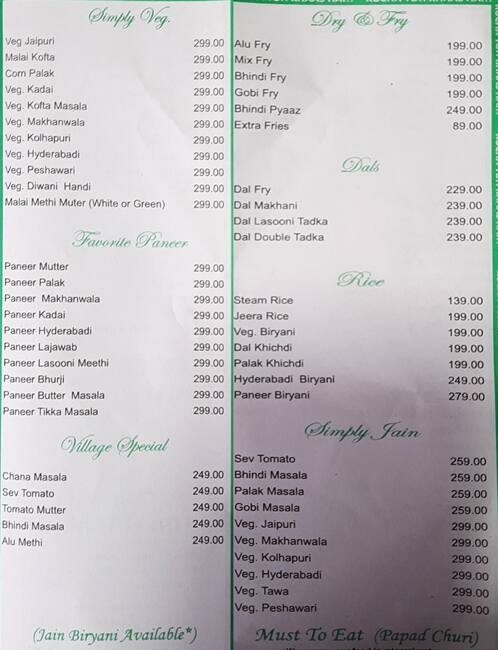 Simply Veg.
Veg Jaipuri 299.00
Malai Kofta 299.00
Corn Palak 299.00
Veg. Kadai 299.00
Veg. Kofta Masala 299.00
Veg. Makhanwala 299.00
Veg. Kolhapuri 299.00
Veg. Hyderabadi 299.00
Veg. Peshawari 299.00
Veg. Diwani Handi 299.00
Malai Methi Muter (White or Green) 299.00
Favorite Paneer
Paneer Mutter 299.00
Paneer Palak 299.00
Paneer Makhanwala 299.00
Paneer Kadai 299.00
Paneer Hyderabadi 299.00
Paneer Lajawab 299.00
Paneer Lasooni Meethi 299.00
Paneer Bhurji 299.00
Paneer Butter Masala 299.00
Paneer Tikka Masala 299.00
Village Special
Chana Masala 249.00
Sev Tomato 249.00
Tomato Mutter 249.00
Bhindi Masala 249.00
Alu Methi 249.00
(Jain Biryani Available*)
Dry & Fry
Alu Fry 199.00
Mix Fry 199.00
Bhindi Fry 199.00
Gobi Fry 199.00
Bhindi Pyaaz 249.00
Extra Fries 89.00
Dals
Dal Fry 229.00
Dal Makhani 239.00
Dal Lasooni Tadka 239.00
Dal Double Tadka 239.00
Rice
Steam Rice 139.00
Jeera Rice 199.00
Veg. Biryani 199.00
Dal Khichdi 199.00
Palak Khichdi 199.00
Hyderabadi Biryani 249.00
Paneer Biryani 279.00
Simply Jain
Sev Tomato 259.00
Bhindi Masala 259.00
Palak Masala 259.00
Gobi Masala 259.00
Veg. Jaipuri 299.00
Veg. Makhanwala 299.00
Veg. Kolhapuri 299.00
Veg. Hyderabadi 299.00
Veg. Tawa 299.00
Veg. Peshawari 299.00
Must To Eat (Papad Churi)